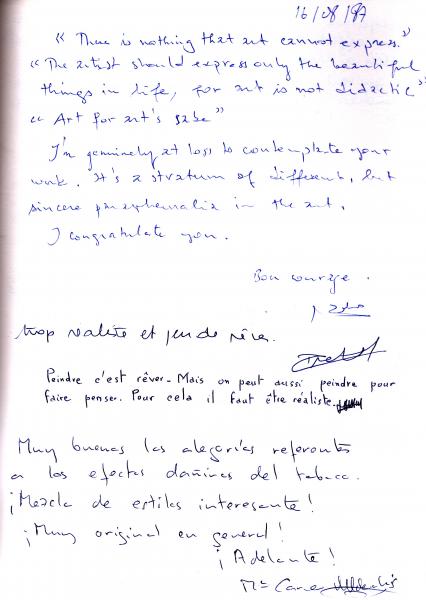 16/08/97
" There is nothing that art cannot express."
" The artist should express only the beautiful
things in life, for art is not didactic "
" Art for art's sake "
I'm genuinely at loss to contemplate your
work. It's a stratum of different, but
sincere paraphernalia in the art.
I congratulate you.
Bon courage.
trop realiste et peu de rêves.
Peindre c'est rêver. Mais on peut aussi peindre pour
faire penser. Pour cela il faut être réaliste.
Muy buenas las alegorías referentes
a los efectos dañinos del tabaco.
¡Mezcla de estilos interesante!
¡Muy original en general!
¡Adelante!
Mª